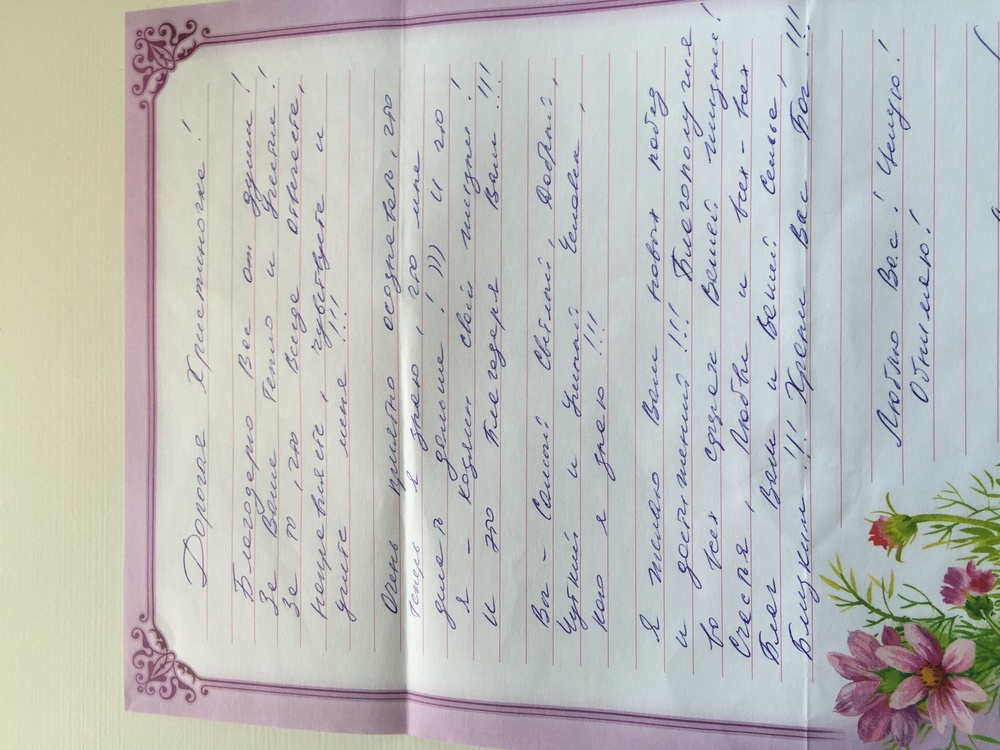 Дорогая Христиночка!
Благодарю Вас от души!
За Ваше тепло и Участие!
За то, что Всегда отвечаете,
направляете, чувствуете и
учите меня !!!
Очень приятно осознавать, что
теперь я знаю, что мне
делать дальше! ))) И что
я - хозяин своей жизни!
И это Благодаря Вам !!!
Вы - Самый Светлый, Добрый,
Чуткий и Умный Человек,
кого я знаю !!!
Я желаю Вам новых побед
и достижений !!! Благополучия
во всех сферах Вашей жизни!
Счастья, Любви и всех - всех
Благ Вам и Вашей Семье,
Близким !!! Храни Вас Бог !!!
Люблю Вас! Целую!
Обнимаю!